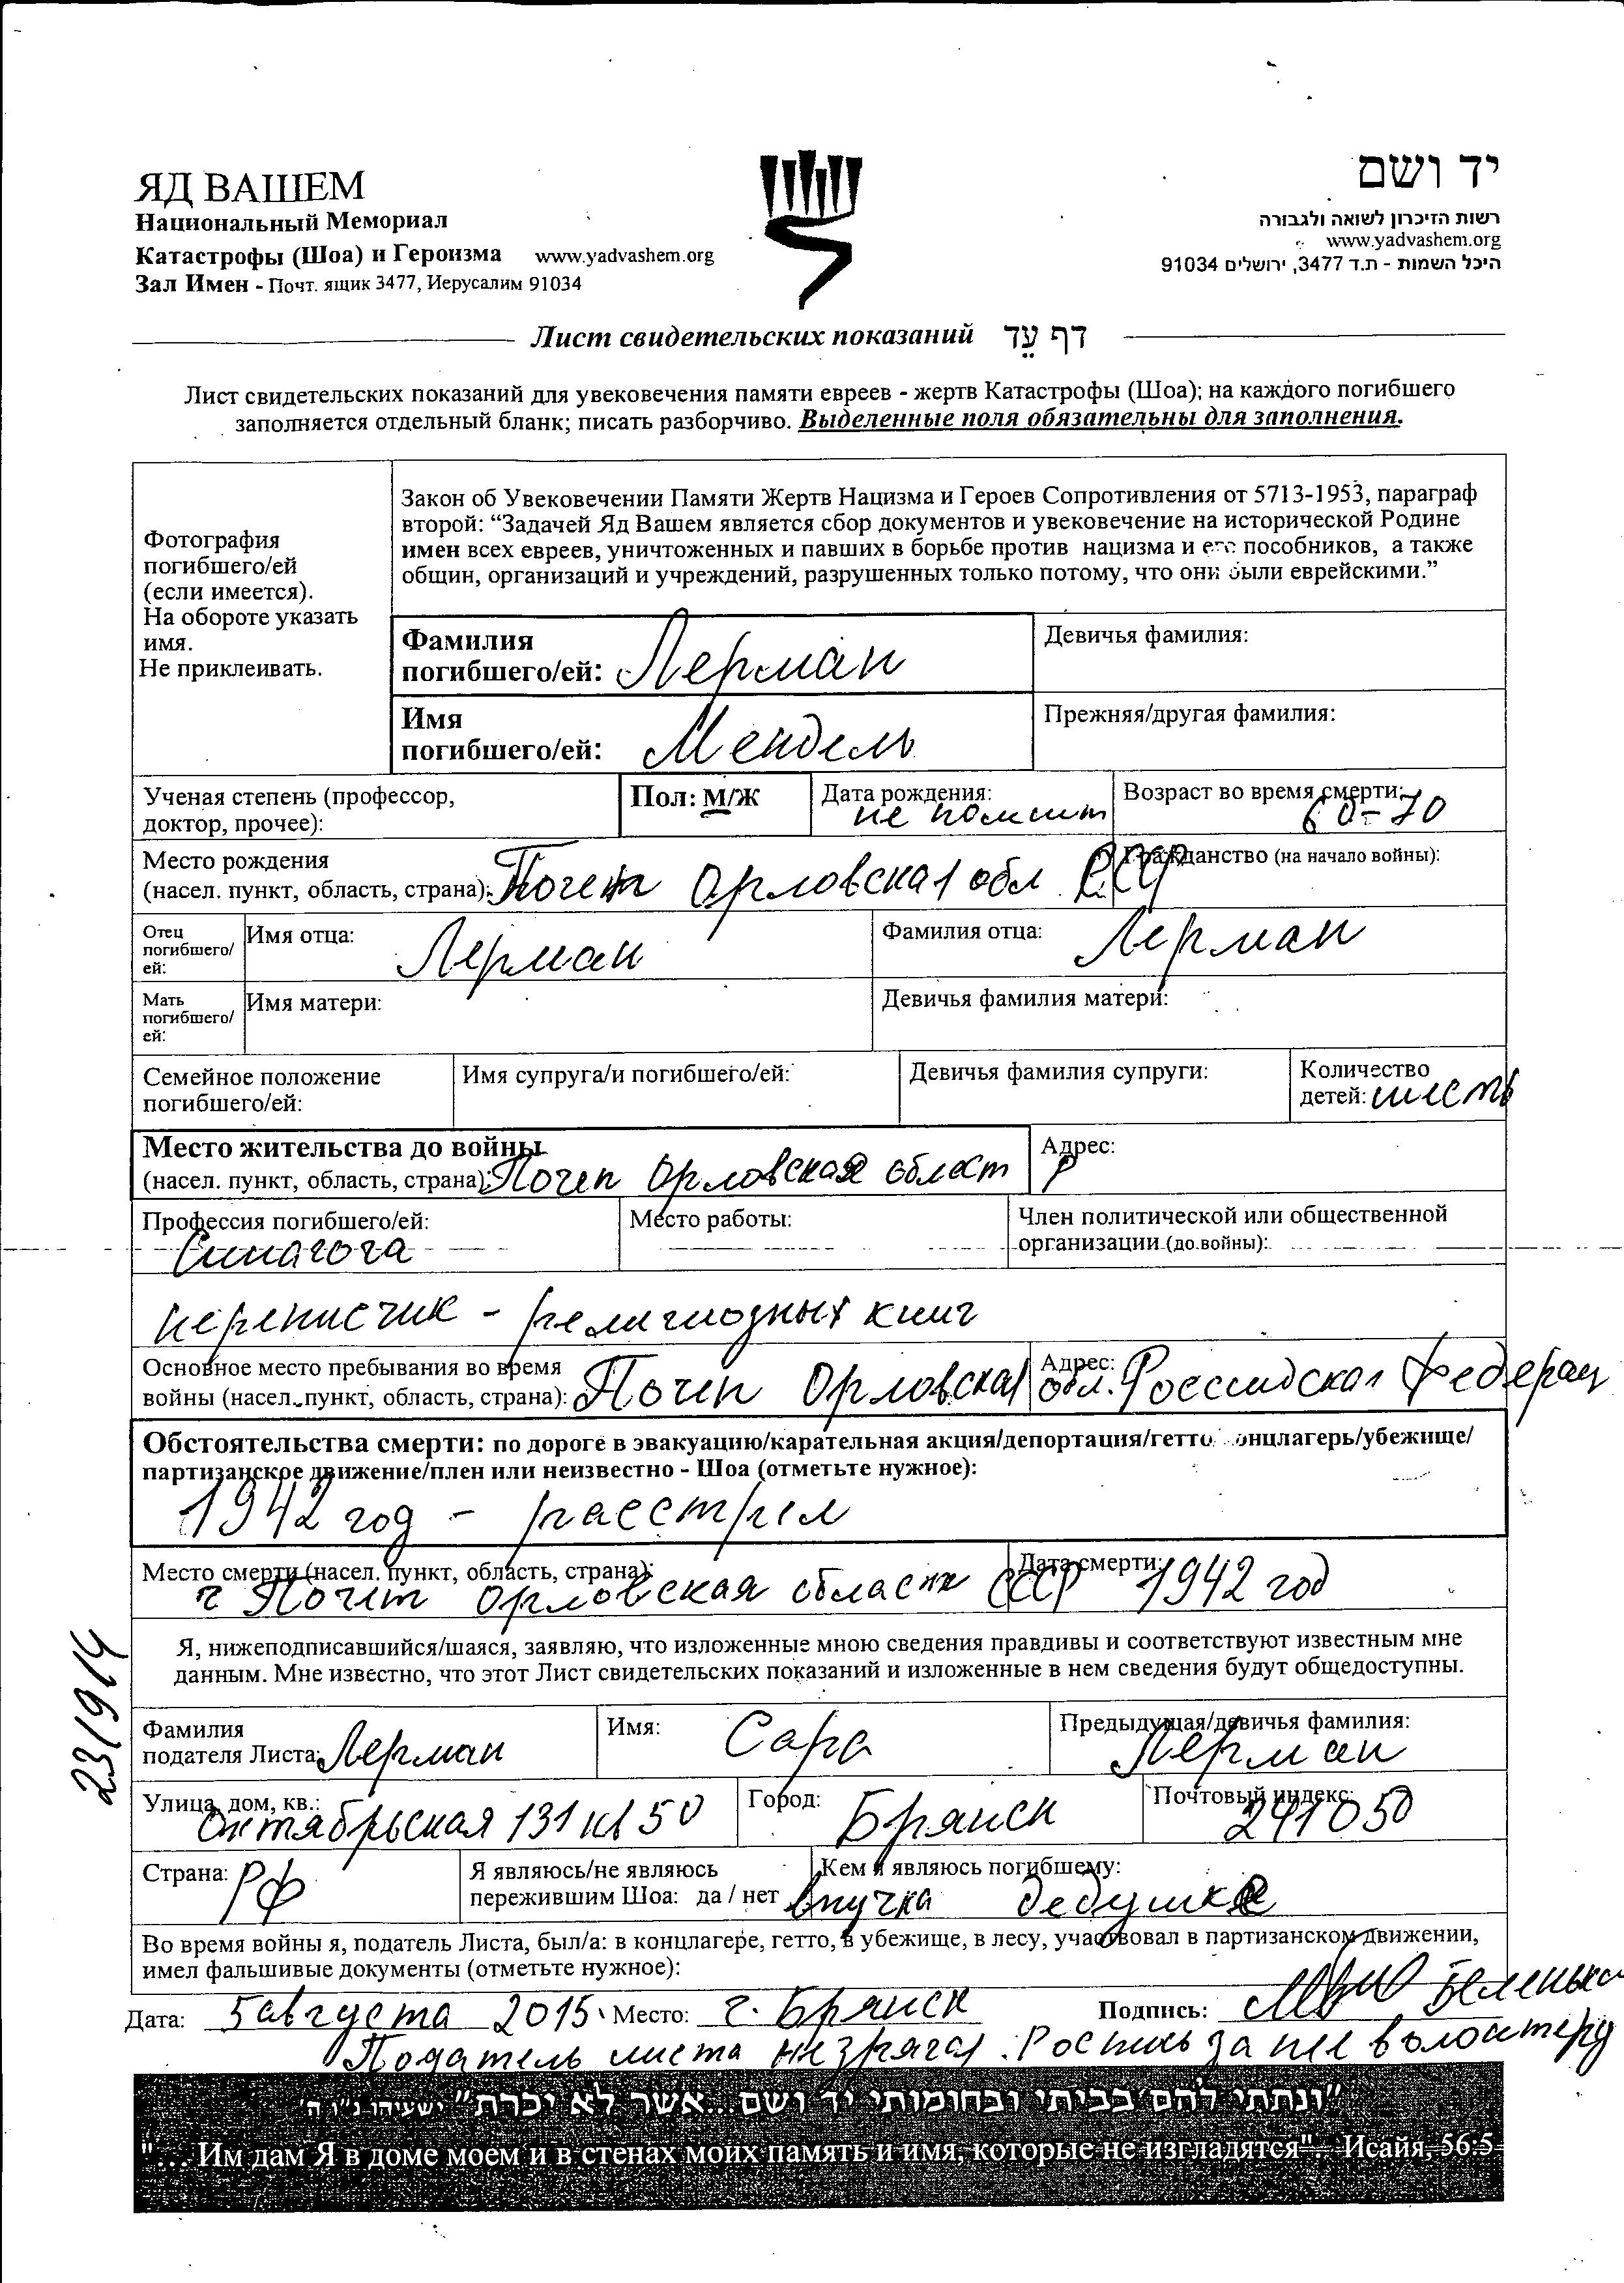 ЯД ВАШЕМ
Национальный Мемориал
Катастрофы (Шоа) и Героизма www.yadvashem.org
Зал Имен - Почт. ящик 3477, Иерусалим 91034
יד ושם
רשות הזיכרון לשואה ולגבורה
www.yadvashem.org
היכל השמות - ת.ד 3477, ירושלים 91034
Лист свидетельских показаний דף עֵד
Лист свидетельских показаний для увековечения памяти евреев - жертв Катастрофы (Шоа); на каждого погибшего
заполняется отдельный бланк; писать разборчиво. Выделенные поля обязательны для заполнения.
Фотография
погибшего/ей
(если имеется).
На обороте указать
имя.
Не приклеивать.
Закон об Увековечении Памяти Жертв Нацизма и Героев Сопротивления от 5713-1953, параграф
второй: “Задачей Яд Вашем является сбор документов и увековечение на исторической Родине
имен всех евреев, уничтоженных и павших в борьбе против нацизма и его пособников, а также
общин, организаций и учреждений, разрушенных только потому, что они были еврейскими.”
Фамилия
погибшего/ей: Лерман
Девичья фамилия:
Имя
погибшего/ей: Мендель
Прежняя/другая фамилия:
Ученая степень (профессор,
доктор, прочее):
Пол: М/Ж
Дата рождения:
не помнит
Возраст во время смерти:
60-70
Место рождения
(насел. пункт, область, страна): Почеп Орловская обл. СССР
Гражданство (на начало войны):
Отец
погибшего/
ей:
Имя отца: Лерман
Фамилия отца: Лерман
Мать
погибшего/
ей:
Имя матери:
Девичья фамилия матери:
Семейное положение
погибшего/ей:
Имя супруга/и погибшего/ей:
Девичья фамилия супруги:
Количество
детей: шесть
Место жительства до войны
(насел. пункт, область, страна): Почеп Орловская област
Адрес:
Р
Профессия погибшего/ей:
Синагога
Место работы:
Член политической или общественной
организации (до войны):
переписчик - религиозных книг
Основное место пребывания во время
войны (насел. пункт, область, страна): Почеп Орловская
Адрес:
обл. Российская Федерац
Обстоятельства смерти: по дороге в эвакуацию/карательная акция/депортация/гетто концлагерь/убежище/
партизанское движение/плен или неизвестно - Шоа (отметьте нужное):
1942 год - расстрел
Место смерти (насел. пункт, область, страна):
г Почеп Орловская область СССР
Дата смерти: 1942 год
Я, нижеподписавшийся/шаяся, заявляю, что изложенные мною сведения правдивы и соответствуют известным мне
данным. Мне известно, что этот Лист свидетельских показаний и изложенные в нем сведения будут общедоступны.
231914
Фамилия
подателя Листа: Лерман
Имя: Сара
Предыдущая/девичья фамилия:
Лерман
Улица, дом, кв.:
Октябрьская 131 кв 50
Город: Брянск
Почтовый индекс:
241050
Страна: РФ
Я являюсь/не являюсь
пережившим Шоа: да / нет
Кем я являюсь погибшему:
внучка дедушке
Во время войны я, податель Листа, был/а: в концлагере, гетто, в убежище, в лесу, участвовал в партизанском движении,
имел фальшивые документы (отметьте нужное):
Дата: 5 августа 2015 Место: г. Брянск Подпись:
Податель листа незрячая. Роспись за нее волонтера
"ונתתי להם בביתי ובחומותי יד ושם...אשר לא יכרת" ישעיהו נ"ו ה'
"... Им дам Я в доме моем и в стенах моих память и имя, которые не изгладятся". Исайя, 56:5